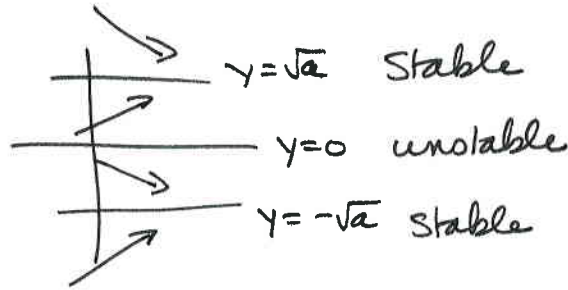 y=√a Stable
y=0 unstable
y=-√a Stable